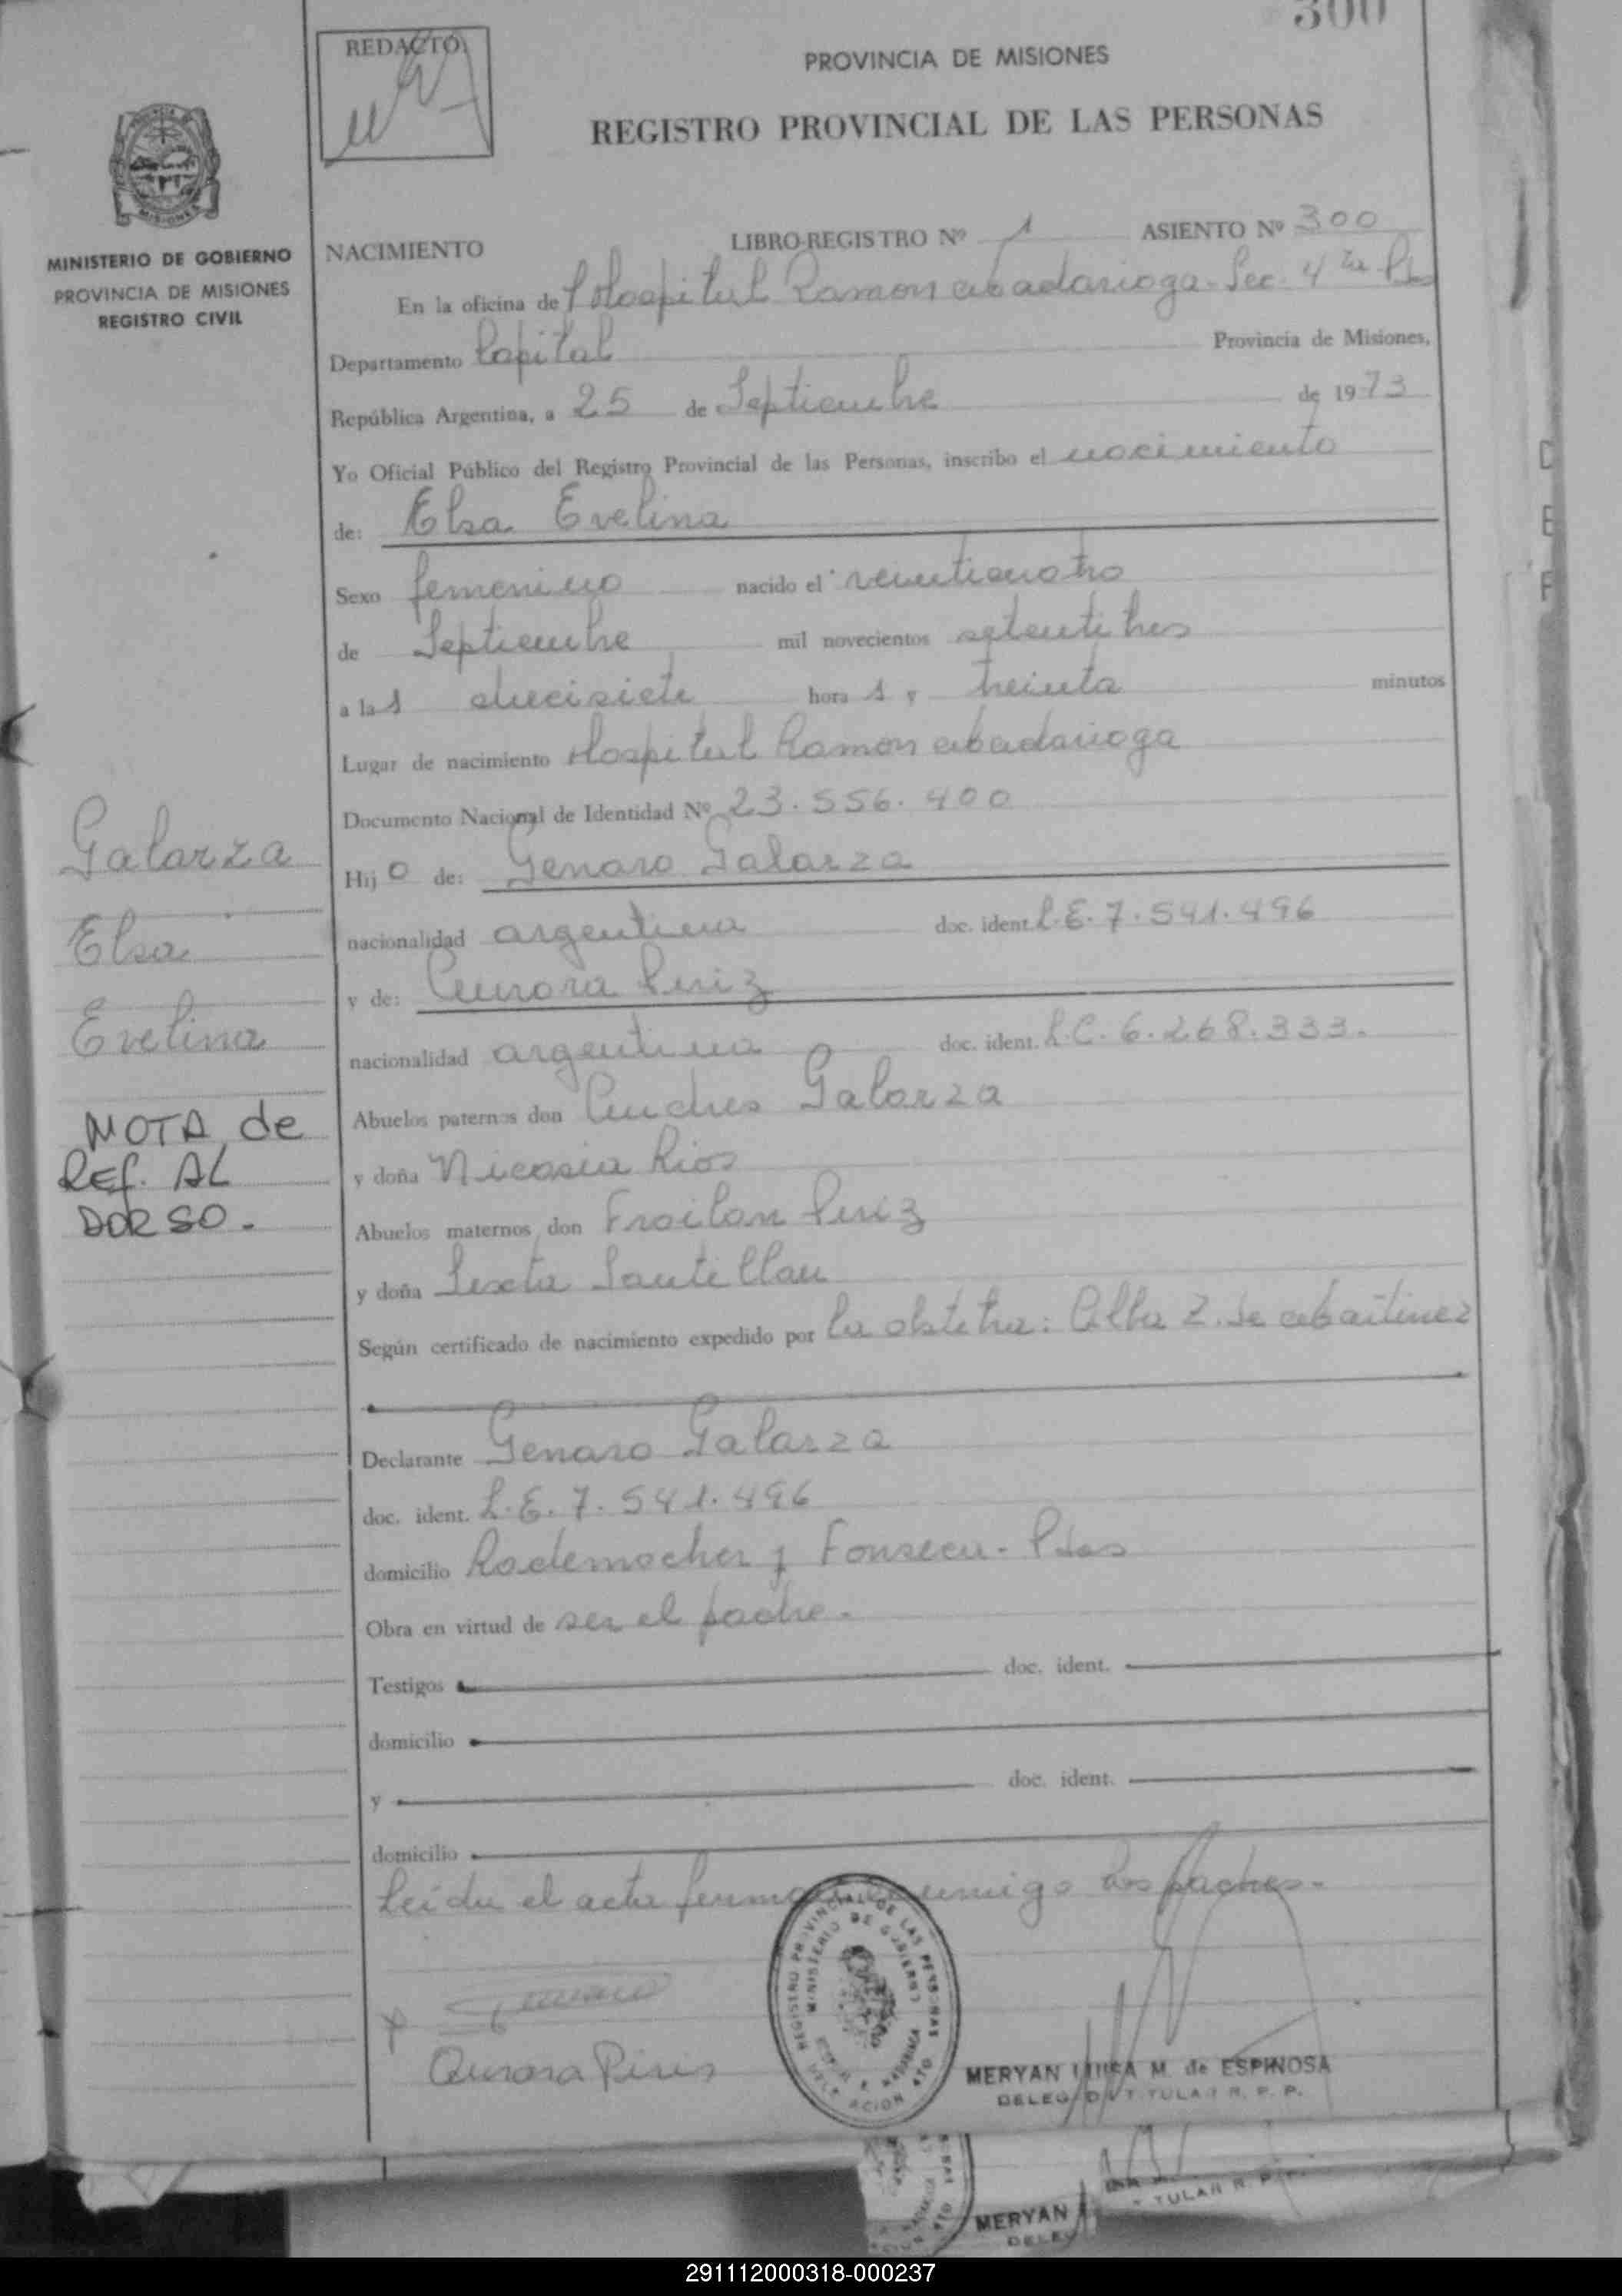 300
REDACTO
PROVINCIA DE MISIONES
REGISTRO PROVINCIAL DE LAS PERSONAS
MINISTERIO DE GOBIERNO
PROVINCIA DE MISIONES
REGISTRO CIVIL
NACIMIENTO LIBRO-REGISTRO Nº 1 ASIENTO Nº 300
En la oficina de Hospital Ramon Madariaga - Sec. 4ta Pdas
Departamento Capital Provincia de Misiones,
República Argentina, a 25 de Septiembre de 1973
Yo Oficial Público del Registro Provincial de las Personas, inscribo el nacimiento
de: Elsa Evelina
Sexo femenino nacido el veinticuatro
de Septiembre mil novecientos setentitres
a las diecisiete horas y treinta minutos
Lugar de nacimiento Hospital Ramon Madariaga
Documento Nacional de Identidad Nº 23.556.400
Hijo de: Genaro Galarza
nacionalidad argentina doc. ident. L.E. 7.541.496
y de: Aurora Piriz
nacionalidad argentina doc. ident. L.C. 6.268.333.
Abuelos paternos don Andres Galarza
y doña Nicasia Rios
Abuelos maternos don Froilan Piriz
y doña Sexta Santillan
Según certificado de nacimiento expedido por la obstetra: Alba Z. de Martinez
Declarante Genaro Galarza
doc. ident. L.E. 7.541.496
domicilio Rademacher y Fonseca - Pdas
Obra en virtud de ser el padre.
Testigos doc. ident.
domicilio
y doc. ident.
domicilio
Leida el acta firman conmigo los padres.
Galarza
Elsa
Evelina
NOTA de
REF. AL
DORSO.
Aurora Piris
REGISTRO PROVINCIAL DE LAS PERSONAS
MINISTERIO DE GOBIERNO
MERYAN LUISA M. de ESPINOSA
DELEGADA TITULAR R. P. P.
MERYAN
TULAR R. P.
DELE
291112000318-000237